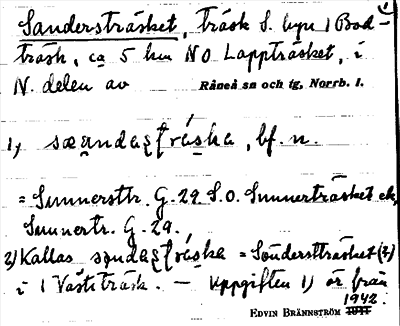 Sandersträsket, träsk S. byn i Bod-
träsk, ca 5 km NO Lappträsket, i
N. delen av Råneå sn och tg, Norrb. l.
1) bf. n.
= Sunnerstr. G. 29 S.O. Sunnerträsket ek,
Sunnertr. G. 29.
2) Kallas = Söndersträsket (?)
i Västiträsk. — Uppgiften 1) är från
1942.
EDVIN BRÄNNSTRÖM